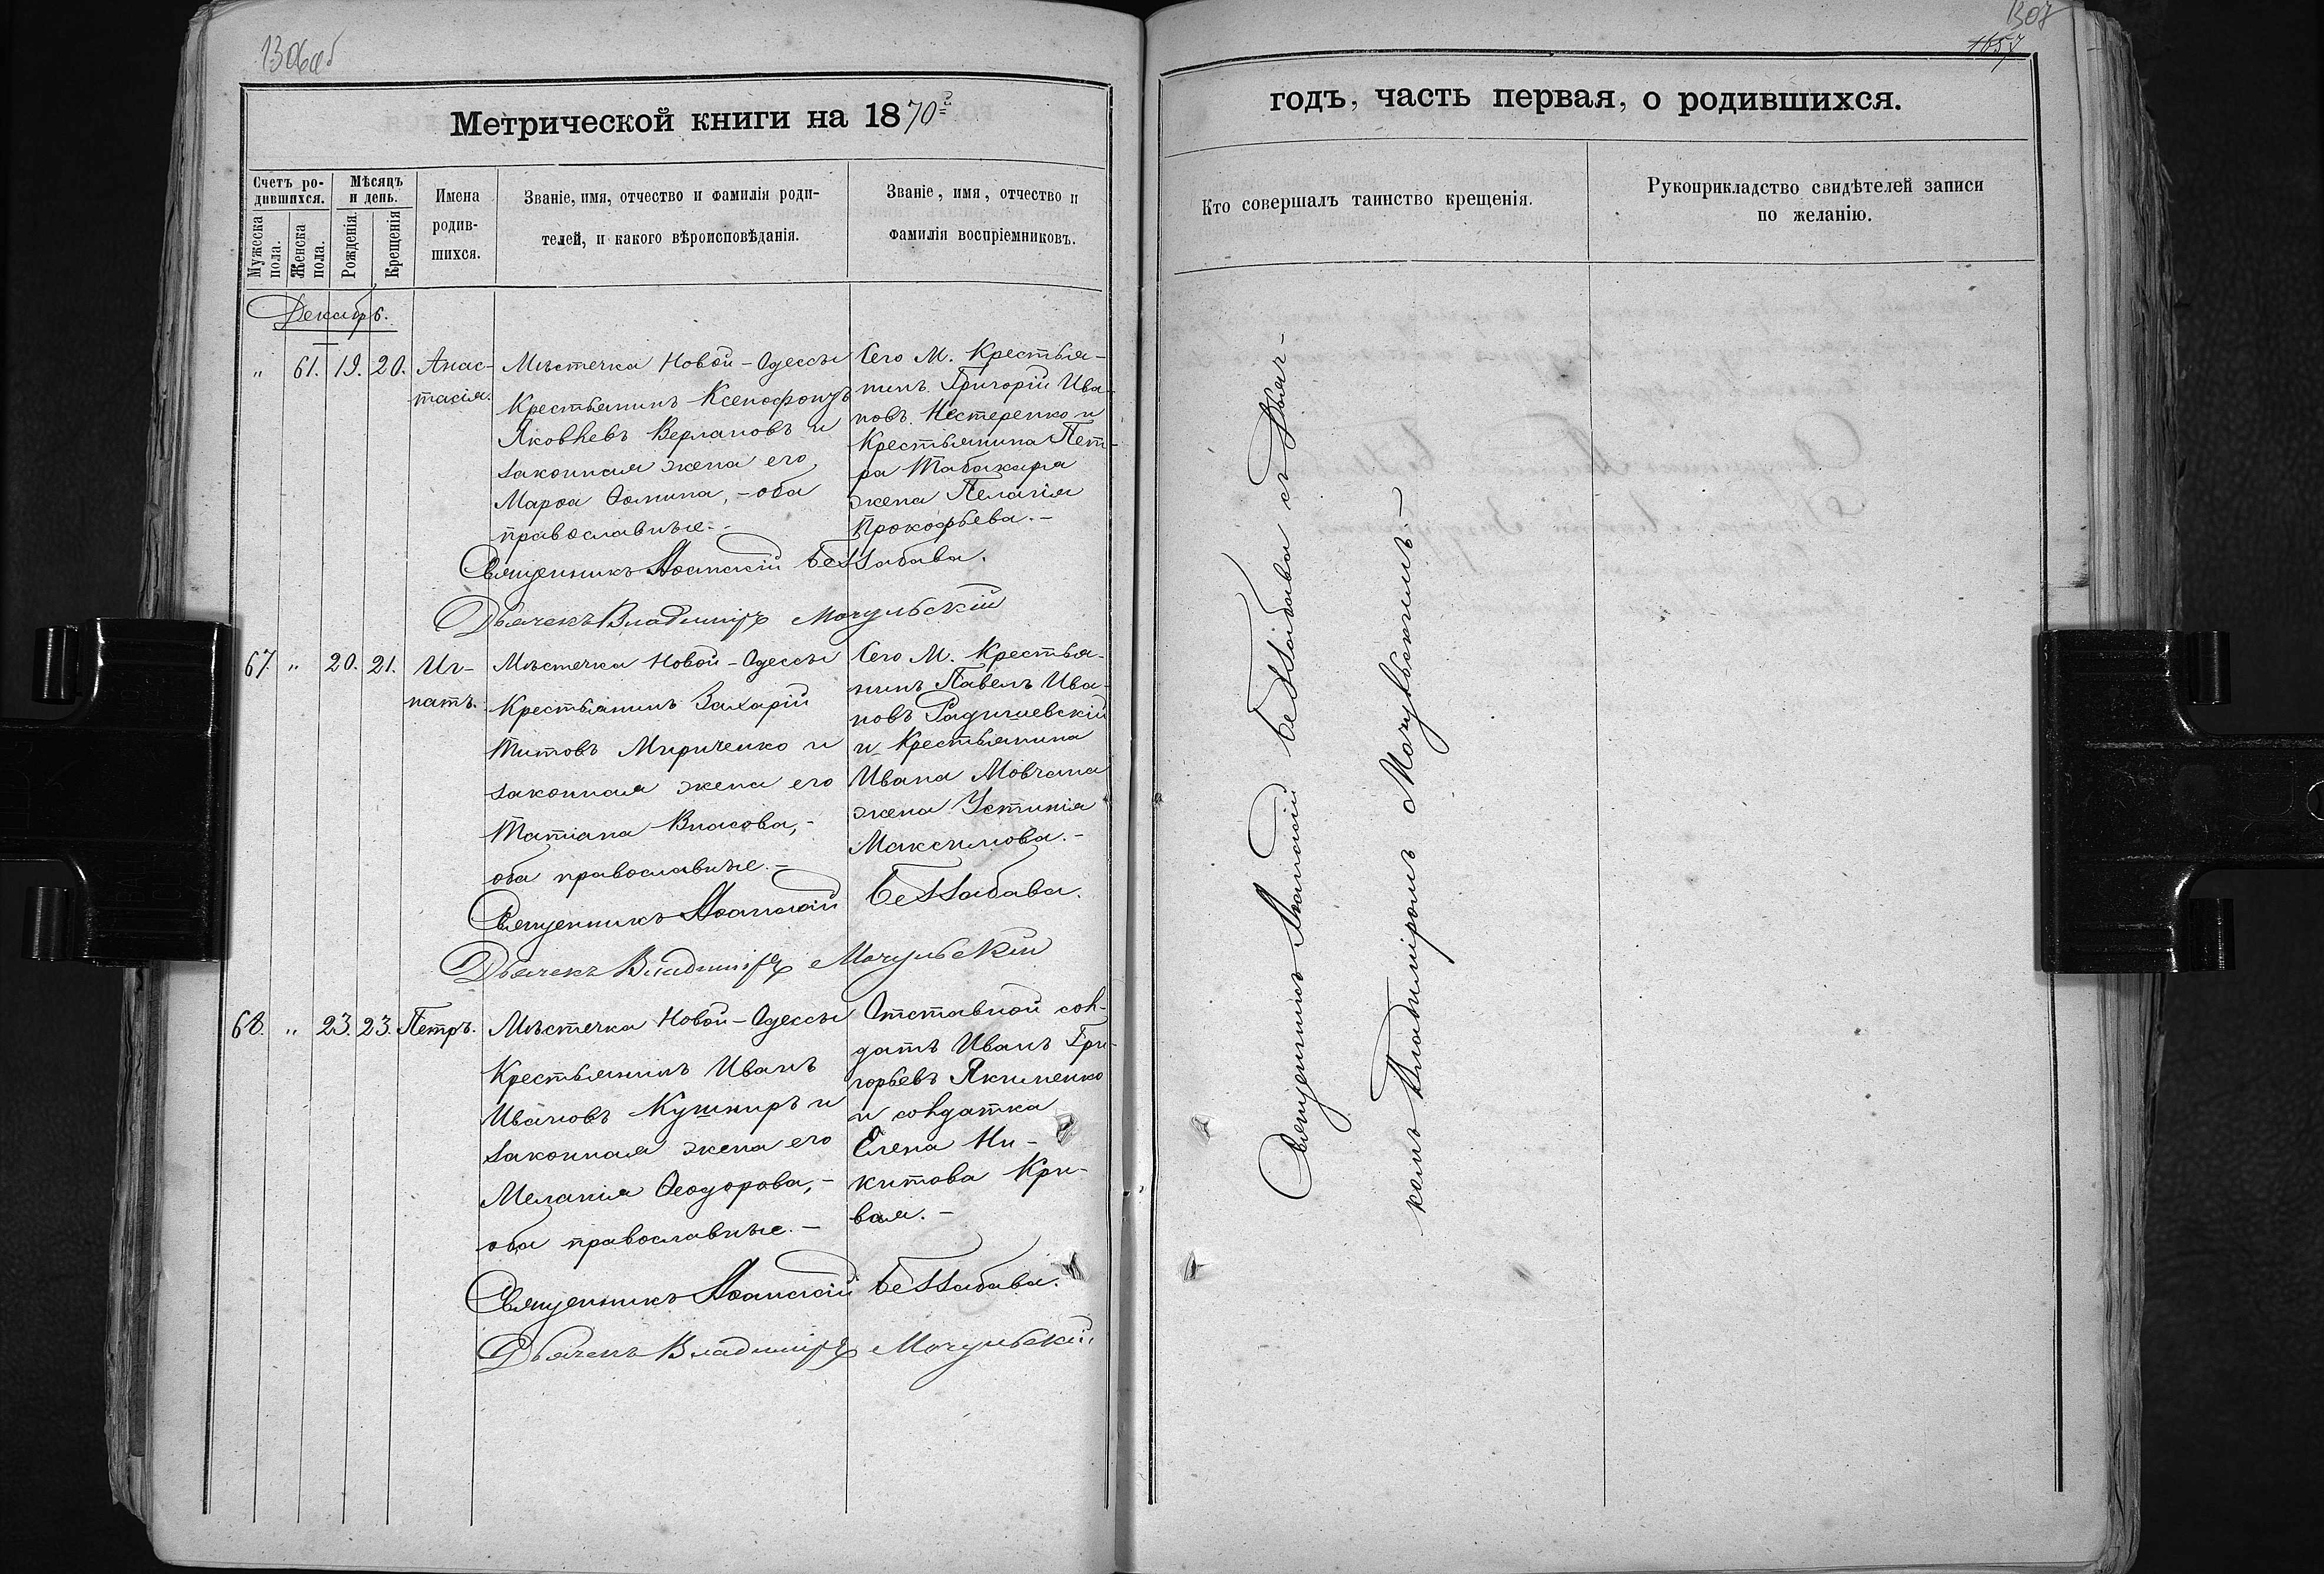 1306об
Метрической книги на 1870й
Счетъ ро-
дившихся.
Мѣсяцъ
и день.
Мужеска
пола.
Женска
пола.
Рожденія.
Крещенія
Имена
родив-
шихся.
Званіе, имя, отчество и фамилія роди-
телей, и какого вѣроисповѣданія.
Званіе, имя, отчество и
фамилія воспріемниковъ.
Декабрь.
" 61. 19. 20.
Анас-
тасія.
Мѣстечка Новой-Одессы
Крестьянинъ Ксенофонтъ
Яковлевъ Верлановъ и
законная жена его,
Марѳа Ѳомина, - оба
православные. -
Сего М. Крестья-
нинъ Григорій Ива-
новъ Нестеренко и
Крестьянина Пет-
ра Табакаря
жена Пелагія
Прокофьева. -
Священникъ Аѳанасій Беззабава.
Дьячекъ Владиміръ Мочульскій
67. " 20. 21.
Иг-
натъ.
Мѣстечка Новой-Одессы
Крестьянинъ Захарій
Титовъ Мириченко и
законная жена его
Татіана Власова, -
оба православные. -
Сего М. Крестья-
нинъ Павелъ Ива-
новъ Радишевскій
и Крестьянина
Ивана Мовчана
жена Устинія
Максимова. -
Священникъ Аѳанасій Беззабава.
Дьячекъ Владиміръ Мочульскій
68. " 23. 23. Петръ.
Мѣстечка Новой-Одессы
Крестьянинъ Иванъ
Ивановъ Кушниръ и
законная жена его
Меланія Ѳеодорова, -
оба православные. -
Отставной сол-
датъ Иванъ Гри-
горьевъ Якименко
и солдатка
Елена Ни-
китова Кри-
вая. -
Священникъ Аѳанасій Беззабава.
Дьячекъ Владиміръ Мочульскій
1307
1657
годъ, часть первая, о родившихся.
Кто совершалъ таинство крещенія.
Рукоприкладство свидѣтелей записи
по желанію.
Священникъ Аѳанасій Беззабава съ Дьяч-
комъ Владиміромъ Мочульскимъ. -